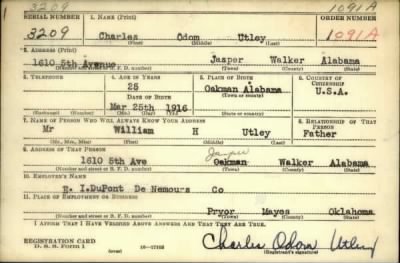 3209 1091A
SERIAL NUMBER 1. NAME (Print) ORDER NUMBER
3209 Charles Odom Utley 1091A
(First) (Middle) (Last)
2. ADDRESS (Print)
1610 5th Avenue Jasper Walker Alabama
(Number and street or R. F. D. number) (Town) (County) (State)
3. TELEPHONE 4. AGE IN YEARS 5. PLACE OF BIRTH 6. COUNTRY OF CITIZENSHIP
25 Oakman Alabama
DATE OF BIRTH (Town or county) U.S.A.
Mar 25th 1916
(Exchange) (Number) (Mo.) (Day) (Yr.) (State or country)
7. NAME OF PERSON WHO WILL ALWAYS KNOW YOUR ADDRESS 8. RELATIONSHIP OF THAT PERSON
Mr William H Utley Father
(Mr., Mrs., Miss) (First) (Middle) (Last)
9. ADDRESS OF THAT PERSON
Jasper
1610 5th Ave Oakman Walker Alabama
(Number and street or R. F. D. number) (Town) (County) (State)
10. EMPLOYER'S NAME
E. I.DuPont De Nemours Co
11. PLACE OF EMPLOYMENT OR BUSINESS
Pryor Mayes Oklahoma
(Number and street or R. F. D. number) (Town) (County) (State)
I AFFIRM THAT I HAVE VERIFIED ABOVE ANSWERS AND THAT THEY ARE TRUE.
REGISTRATION CARD
D. S. S. Form 1 16—17105 Charles Odom Utley
(over) (Registrant's signature)